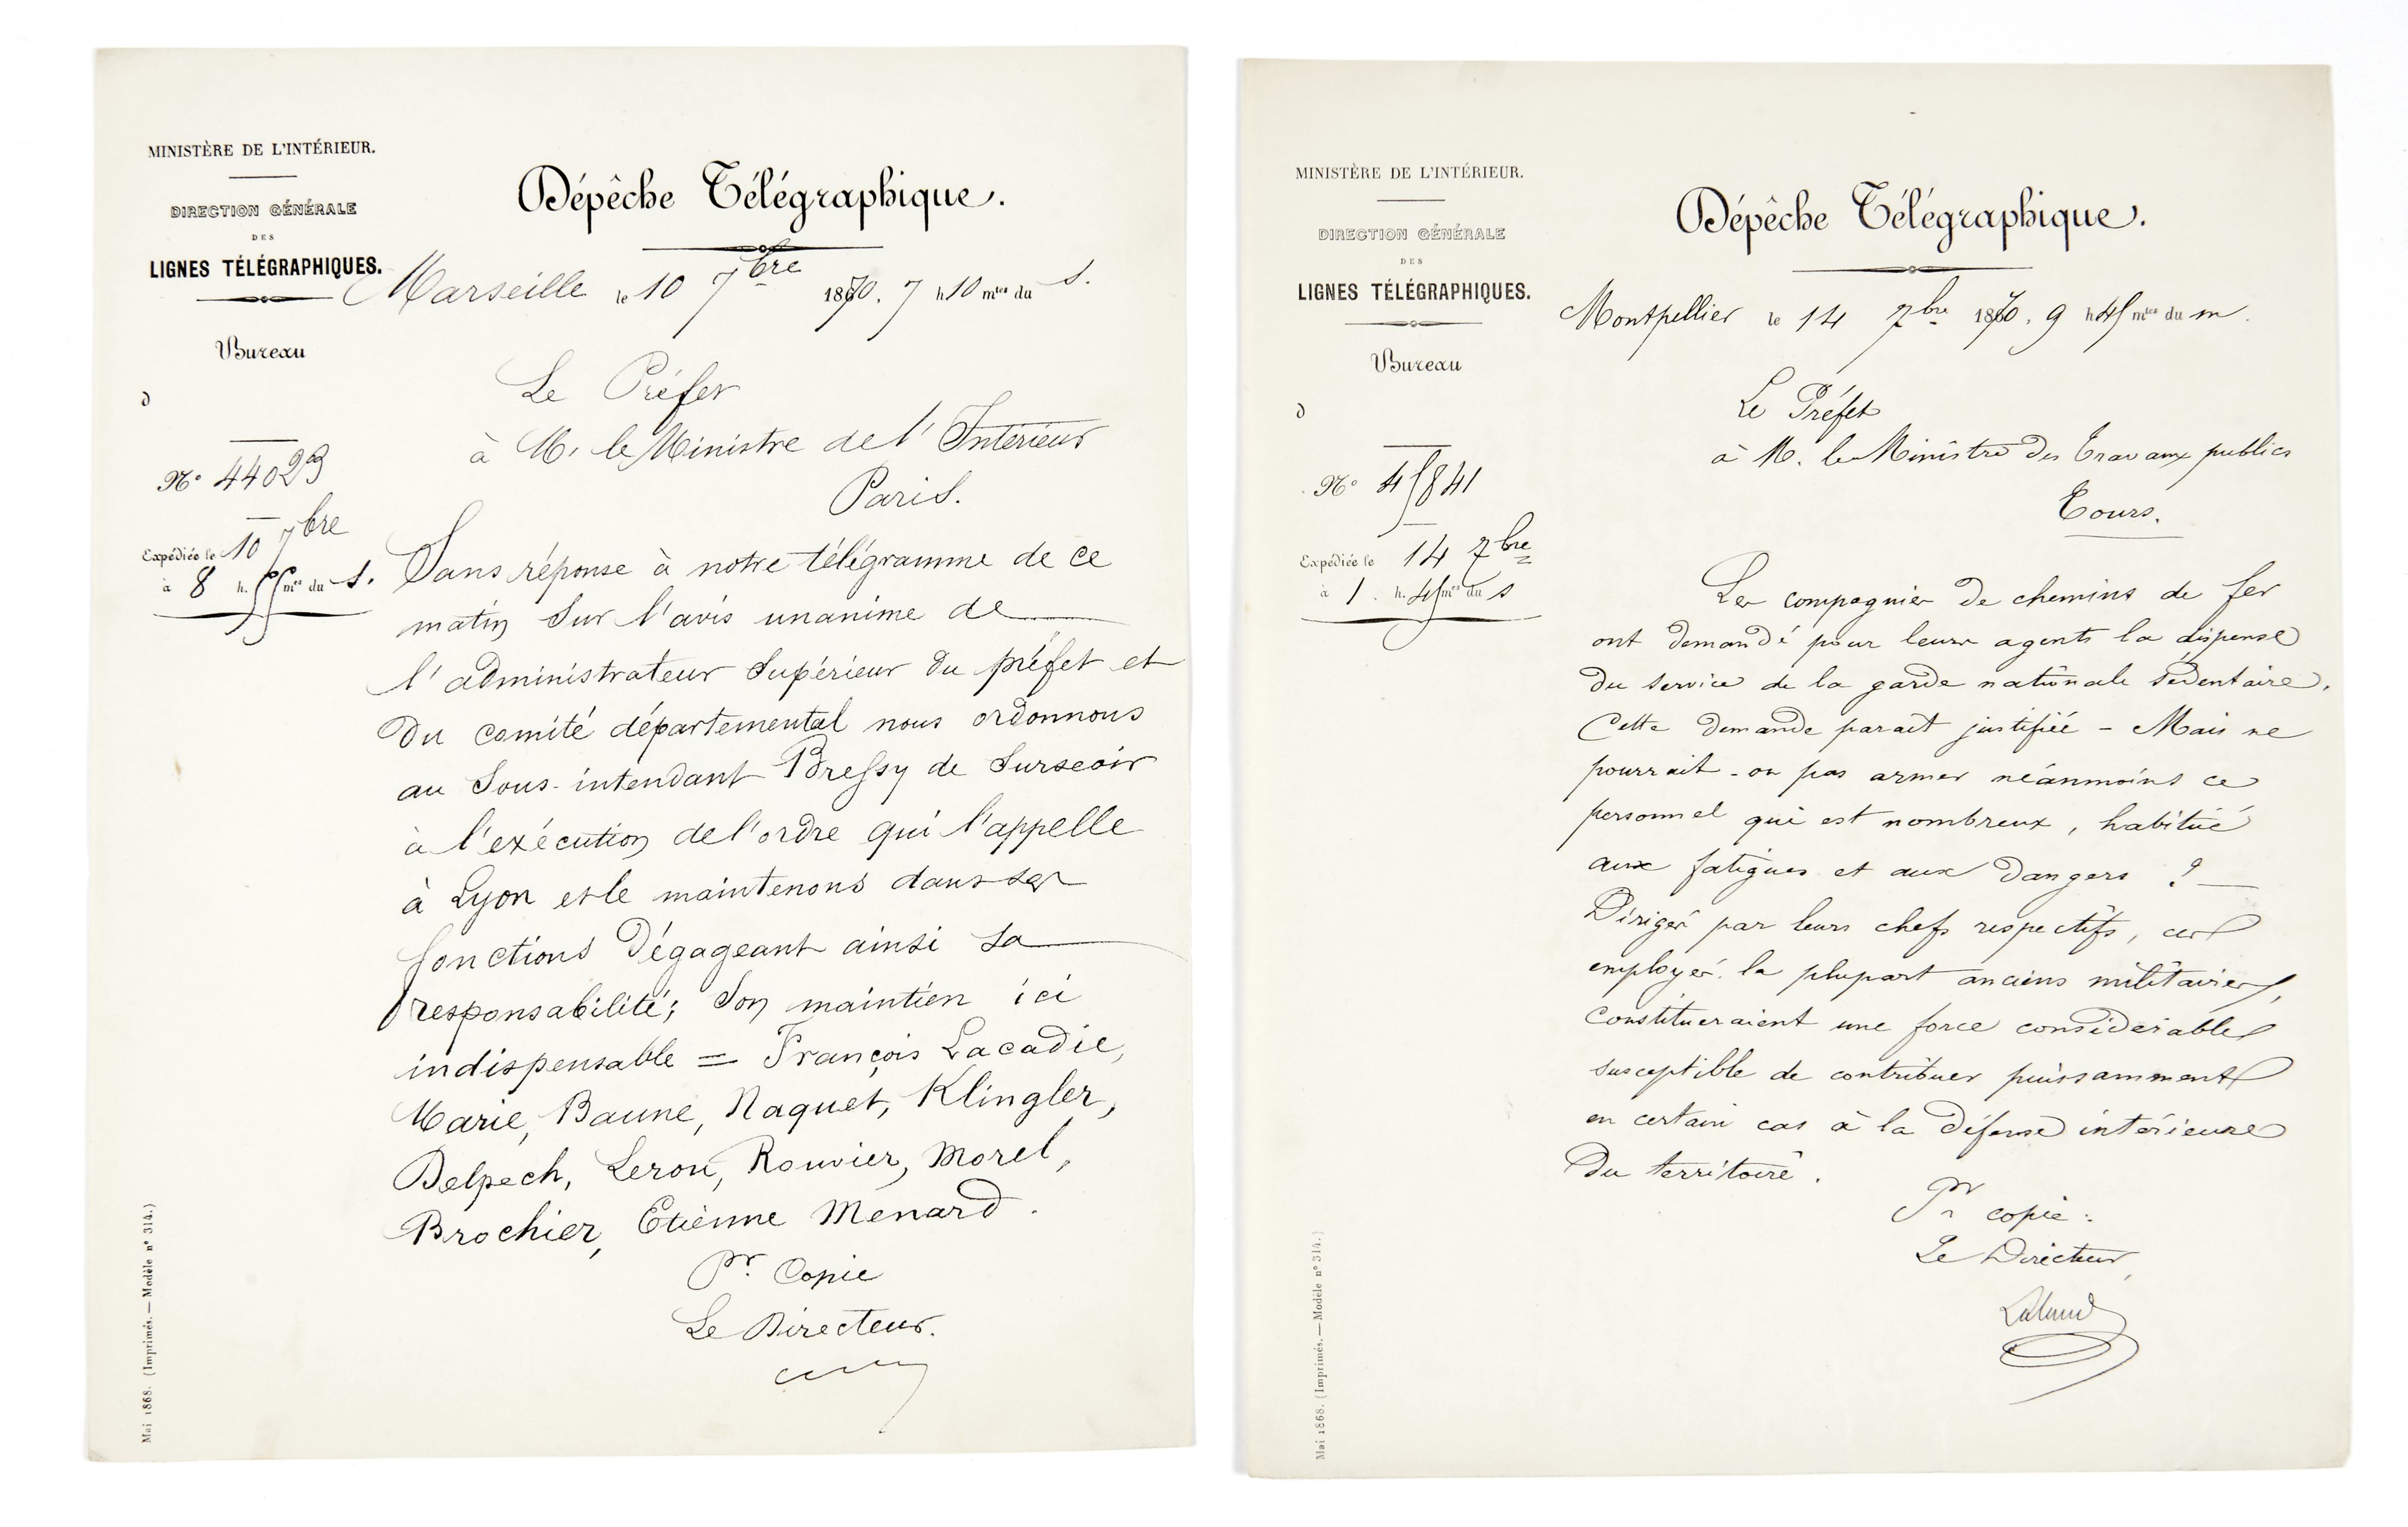 MINISTÈRE DE L'INTÉRIEUR.
DIRECTION GÉNÉRALE
DES
LIGNES TÉLÉGRAPHIQUES.
Dépêche Télégraphique.
Marseille le 10 7bre 1870. 7 h 10 mtes du s.
Bureau
d
N° 44023
Expédiée le 10 7bre
à 8 h. 55 mtes du s.
Le Préfet
à M. le Ministre de l'Intérieur
Paris.
Sans réponse à notre télégramme de ce
matin sur l'avis unanime de
l'administrateur supérieur du préfet et
du comité départemental nous ordonnons
au sous-intendant Bressy de surseoir
à l'exécution de l'ordre qui l'appelle
à Lyon et le maintenons dans ses
fonctions dégageant ainsi sa
responsabilité; son maintien ici
indispensable = François Lacadie,
Marie, Baune, Naquet, Klingler,
Delpech, Lerou, Rouvier, Morel,
Brochier, Etienne Menard.
Pr. Copie
Le Directeur.
Mai 1868. (Imprimés. — Modèle n° 314.)
MINISTÈRE DE L'INTÉRIEUR.
DIRECTION GÉNÉRALE
DES
LIGNES TÉLÉGRAPHIQUES.
Dépêche Télégraphique.
Montpellier le 14 7bre 1870. 9 h 45 mtes du m.
Bureau
d
N° 45841
Expédiée le 14 7bre
à 1. h. 45 mtes du s
Le Préfet
à M. le Ministre des Travaux publics
Tours.
Les compagnies de chemins de fer
ont demandé pour leurs agents la dispense
du service de la garde nationale sédentaire.
Cette demande parait justifiée - Mais ne
pourrait-on pas armer néanmoins ce
personnel qui est nombreux, habitué
aux fatigues et aux dangers ? —
Dirigés par leurs chefs respectifs, ces
employés la plupart anciens militaires,
constitueraient une force considérable
susceptible de contribuer puissamment
en certain cas à la défense intérieure
du territoire.
Pr copie :
Le Directeur,
Mai 1868. (Imprimés. — Modèle n° 314.)